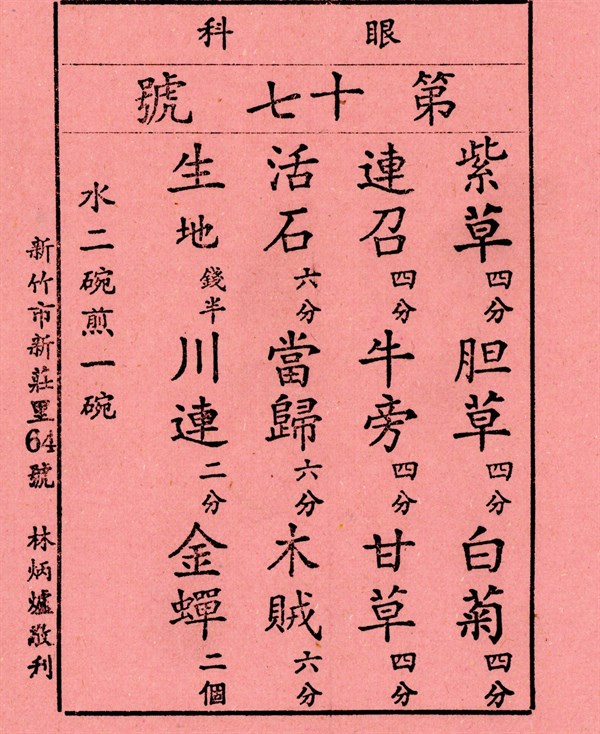 眼科
第十七號
紫草四分 胆草四分 白菊四分
連召四分 牛旁四分 甘草四分
活石六分 當歸六分 木賊六分
生地錢半 川連二分 金蟬二個
水二碗煎一碗
新竹市新莊里64號 林炳爐敬刊